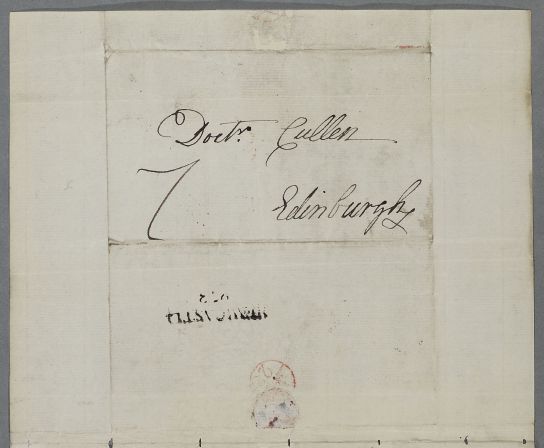 Doctr. Cullen
7
Edinburgh